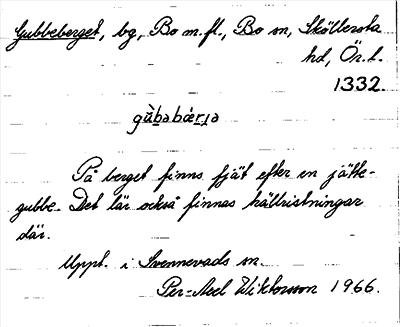 Gubbeberget, bg, Bo m.fl., Bo sn, Sköllersta
hd, Ör. l.
1332.
gùbabæ̀rja
På berget finns fjät efter en jätte-
gubbe. Det lär också finnas hällristningar
där.
Uppt. i Svennevads sn.
Per-Axel Wiktorsson 1966.